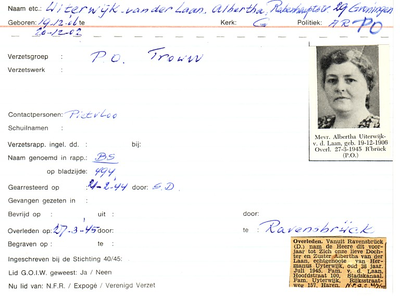 Naam etc.: Uiterwijk-van der Laan, Albertha, Rabenhauptstr 29 Groningen
Geboren: 19-12-06 te Kerk: G Politiek: AR
20-12-02 PO
Verzetsgroep : P.O. Trouw
Verzetswerk :
Contactpersonen:
Schuilnaam :
Verzetsrapp. ingel. dd. : bij:
Naam genoemd in rapp.: BS
op bladzijde: 444
Gearresteerd op door: S.D.
Gevangen gezeten in :
Bevrijd op : uit : door:
Overleden op: 27-3-45 door: te Ravensbrück
Begraven op : te :
Ingeschreven bij de Stichting 40/45:
Lid G.O.I.W. geweest: Ja / Neen
Nu lid van: N.F.R. / Expogé / Verenigd Verzet
Mevr. Albertha Uiterwijk-
v. d. Laan, geb. 19-12-1906
Overl. 27-3-1945 R'brück
(P.O.)
Overleden. Vanuit Ravensbrück
(D.) nam de Heere dit voor-
jaar tot Zich onze lieve Doch-
ter en Zuster Albertha van der
Laan, echtgenoote van Her-
manus Uyterwijk, oud 38 jaar.
Juli 1945. Fam. v. d. Laan,
Hoofdstraat 100, Stadskanaal.
Fam. Uyterwijk, Rijksstraat-
weg 157, Haren.